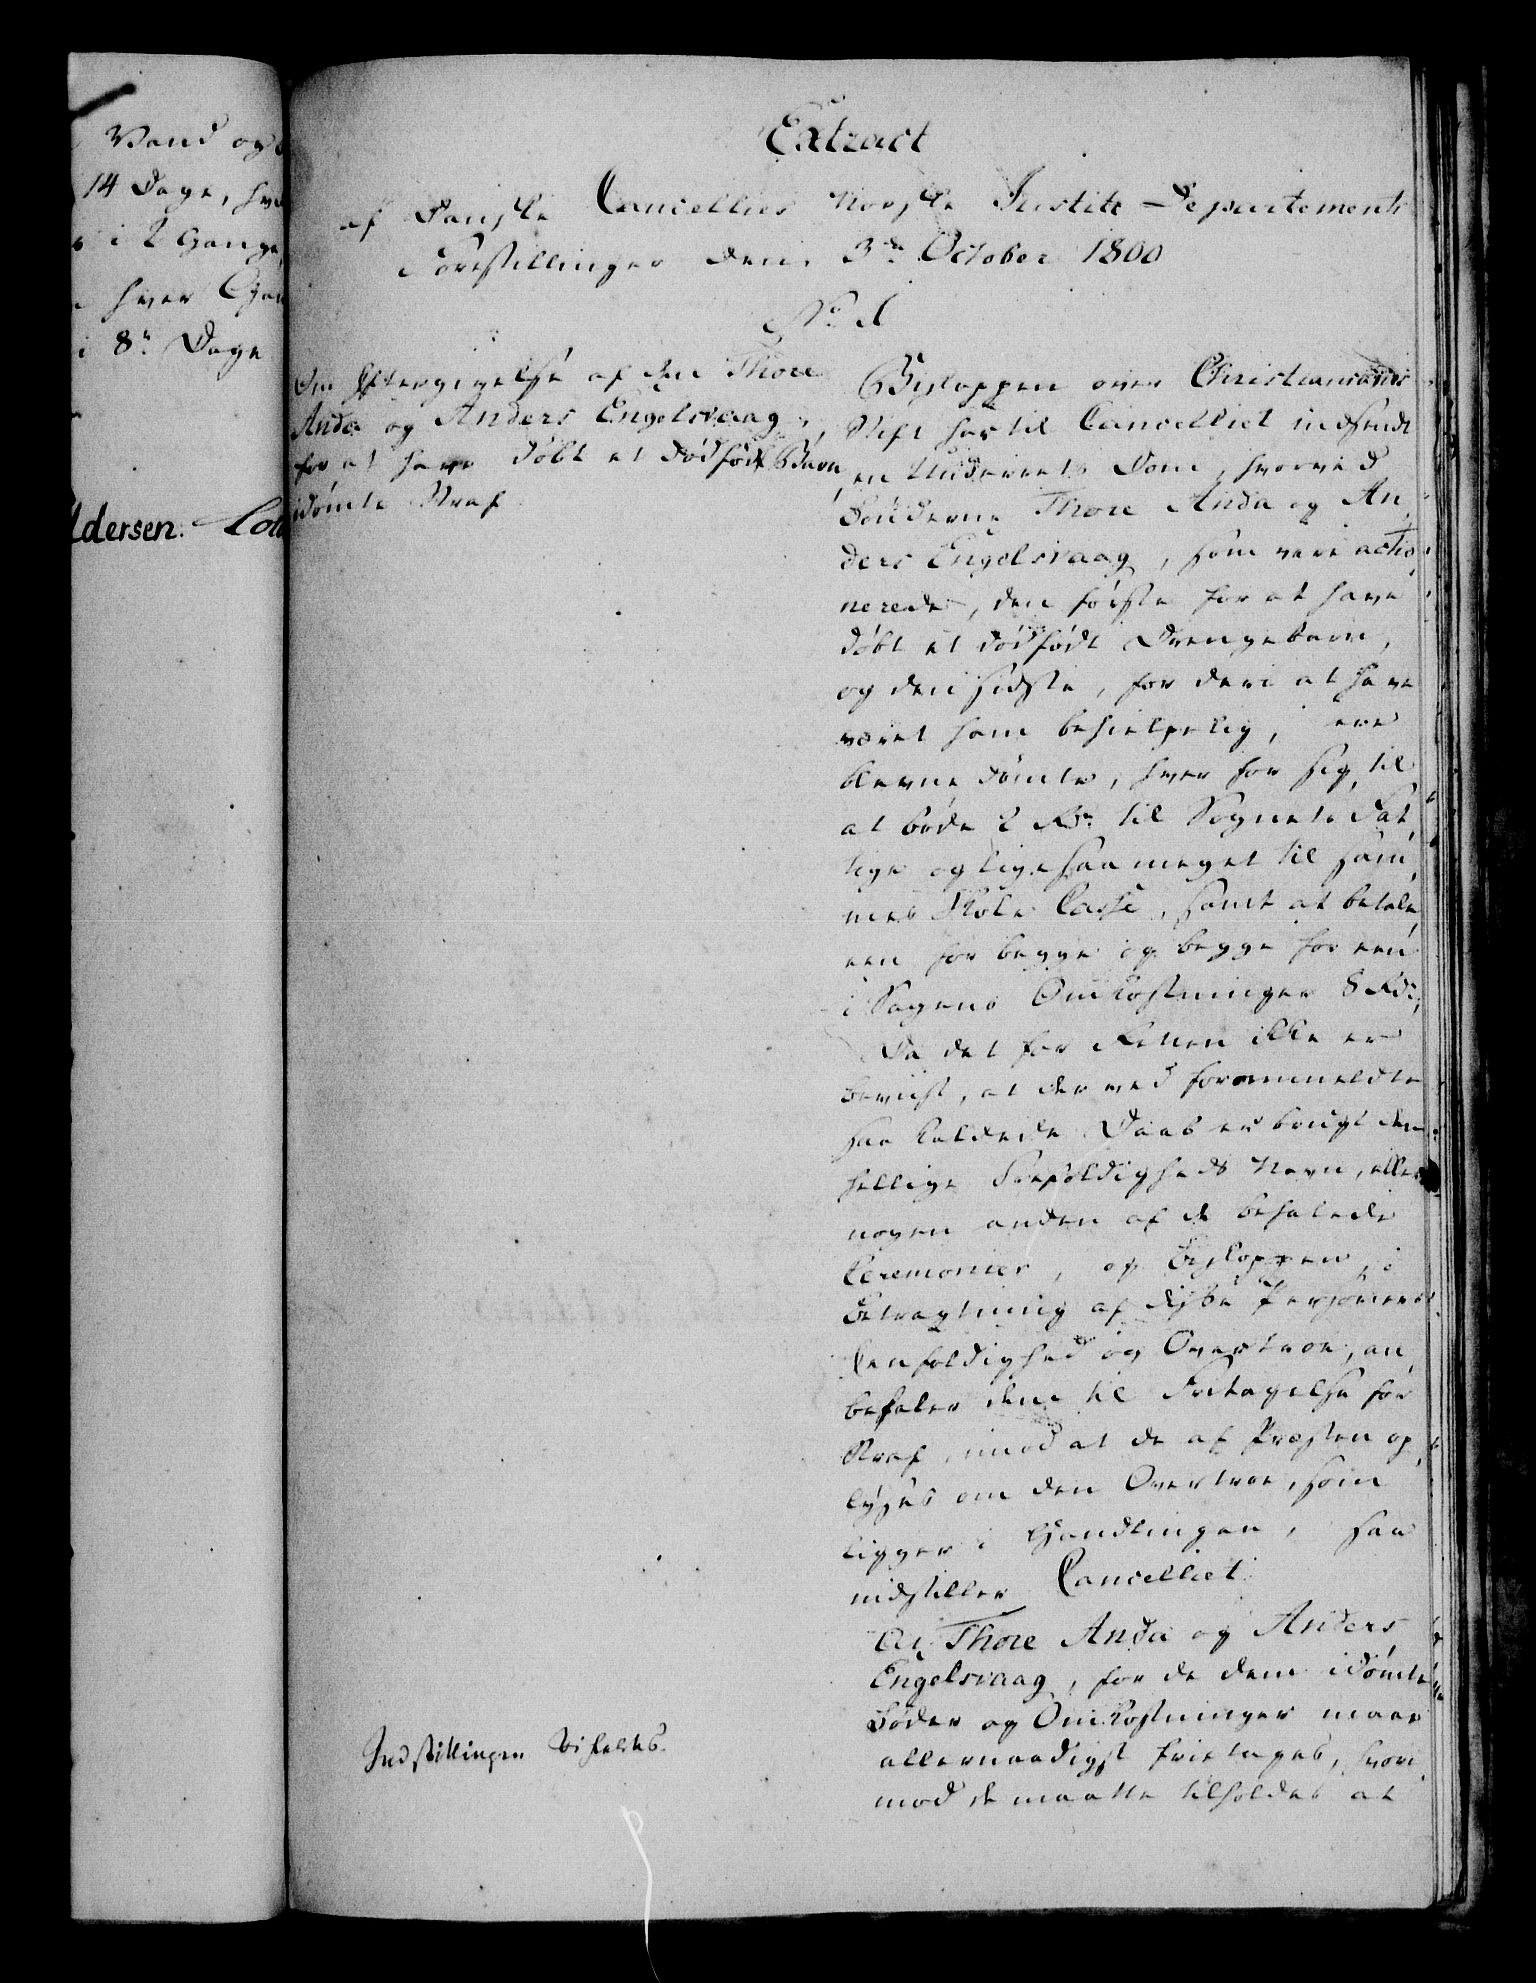 Vand og
14 Dage, hvor
i 2 Gange
hver Gang
i 8te Dage
ldersen. Lou
Extract
af Danske Cancellies Norske Justits Departements
Forestillinger den 3de October 1800
No 1
Om Eftergivelse af den Thore
Anda og Anders Engelsvaag,
for at have døbt et dødfødt Barn,
idømte Straf
Biskoppen over Christiansands
Stift har til Cancelliet indsendt
en Underrets Dom, hvorved
Bønderne Thore Anda og An,
ders Engelsvaag, som vare actio,
nerede, den første for at have
døbt et dødfødt Drengebarn,
og den sidste, for deri at have
været ham behielpelig, ere
blevne dømte, hver for sig, til
at bøde 2 Rdr til Sognets Fat,
tige og ligesaa meget til sam,
mes Skole Casse, samt at betale
een for begge og begge for een
i Sagens Omkostninger 8 Rdr,
Da det for Retten ikke er
beviist, at der ved forommeldte
saa kaldede Daab er brugt den
hellige Treefoldigheds Navn, eller
nogen anden af de befalede
Ceremonier, og Biskoppen, i
Betragtning af disse Personers
Eenfoldighed og Overtroe, an,
befaler dem til Fritagelse for
Straf, imod at de af Præsten op,
lyses om den Overtroe, som
ligger i Handlingen, saa
indstiller Cancelliet:
At Thore Anda og Anders
Engelsvaag, for de dem idømte
Bøder og Omkostninger maae
allernaadigst fritages, hvor,
mod de maatte tilholdes at
Indstillingen bifaldes.